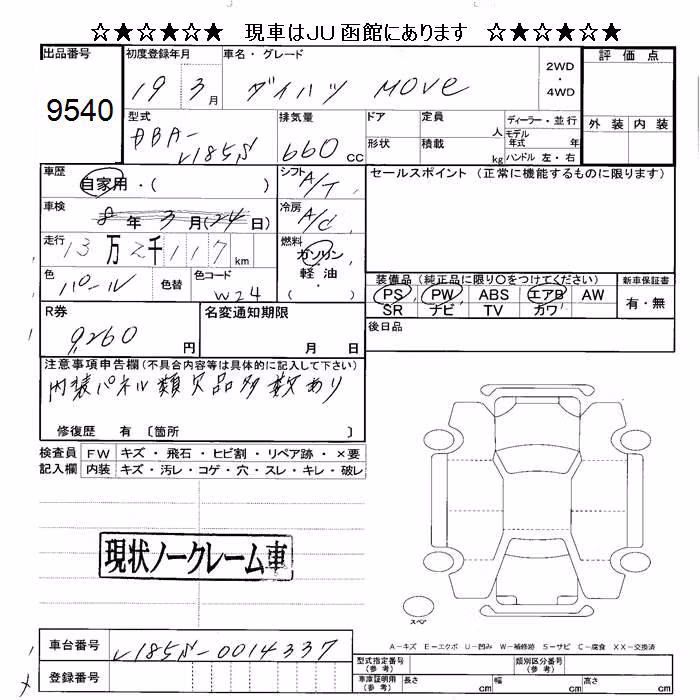 ☆★☆★☆★ 現車はJU函館にあります ☆★☆★☆★
出品番号
9540
初度登録年月
19 3月
車名・グレード
ダイハツ MOVe
2WD
・
4WD
評価点
外装 内装
型式
DBA-
L185S
排気量
660cc
ドア
定員
人
形状
積載
kg
ディーラー・並行
モデル年式 年
ハンドル 左・右
車歴
自家用・( )
シフト
A/T
セールスポイント（正常に機能するものに限ります）
車検
8年3月(24日)
冷房
A/C
走行
13万2千117km
燃料
ガソリン
・
軽油
( )
色
パール
色替
色コード
W24
装備品（純正品に限り○をつけてください）
PS PW ABS エアB AW
SR ナビ TV カワ
新車保証書
有・無
R券
9,260円
名変通知期限
月 日
後日品
注意事項申告欄（不具合内容等は具体的に記入して下さい）
内装パネル類欠品多数あり
修復歴 有〔箇所 〕
検査員
記入欄
FW キズ・飛石・ヒビ割・リペア跡・×要
内装 キズ・汚レ・コゲ・穴・スレ・キレ・破レ
現状ノークレーム車
スペア
A－キズ E－エクボ U－凹み W－補修跡 S－サビ C－腐食 XX－交換済
車台番号
L185S-0014337
登録番号
型式指定番号
（参考）
類別区分番号
（参考）
車庫証明用
（参考）
長さ cm
幅 cm
高さ cm